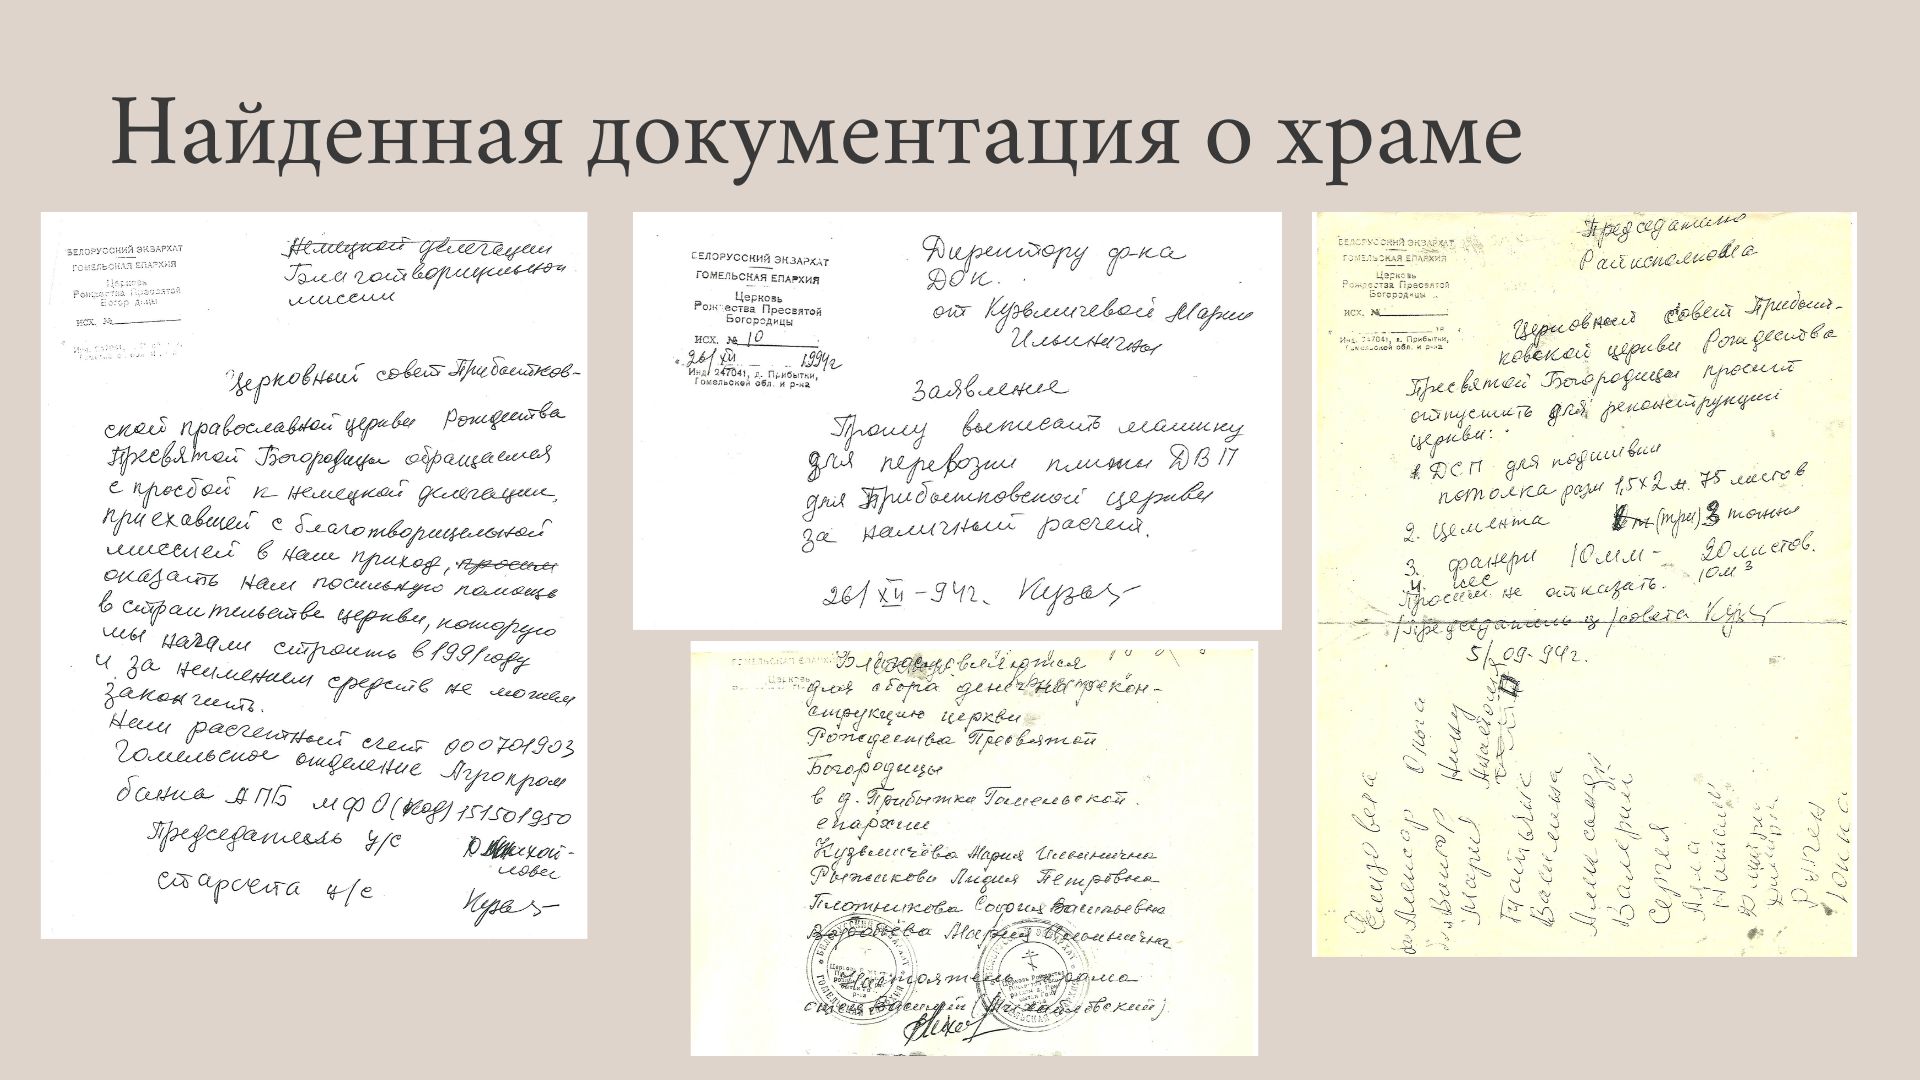 Найденная документация о храме
БЕЛОРУССКИЙ ЭКЗАРХАТ
ГОМЕЛЬСКАЯ ЕПАРХИЯ
Церковь
Рождества Пресвятой
Богородицы
ИСХ. №
Немецкой делегации
Благотворицельной
миссии
Церковный совет Прибытков-
ской православной церкви Рождества
Пресвятой Богородицы обращаемся
с прозбой к немецкой делегации,
приехавшей с благотворицельной
миссией в наш приход, просим
оказать нам посильную помощь
в строительстве церкви, которую
мы начали строить в 1991 году
и за неимением средств не можем
закончить.
Наш расчетный счет 000701903
Гомельское отделение Агропром
банка АПБ МФО (код) 151501950
Председатель ц/с
староста ц/с
БЕЛОРУССКИЙ ЭКЗАРХАТ
ГОМЕЛЬСКАЯ ЕПАРХИЯ
Церковь
Рождества Пресвятой
Богородицы
ИСХ. № 10
26/XII 1994г
Инд. 247041, д. Прибытки,
Гомельской обл. и р-на
Директору ф-ка
ДОК.
от Кузьмичевой Марии
Ильиничны
Заявление
Прошу выписать машину
для перевозки плиты ДВП
для Прибытковской церкви
за наличный расчет.
26/XII-94г.
ГОМЕЛЬСКАЯ ЕПАРХИЯ
Церковь
Благословляются
для сбора денег на рекон-
струкцию церкви
Рождества Пресвятой
Богородицы
в д. Прибытки Гомельской
епархии
Кузьмичёва Мария Ильинична
Рыжикова Лидия Петровна
Плотникова София Васильевна
Воробьёва Мария Ильинична
Настоятель храма
Василий (Михайловский)
БЕЛОРУССКИЙ ЭКЗАРХАТ
ГОМЕЛЬСКАЯ ЕПАРХИЯ
Церковь
Рождества Пресвятой
Богородицы
ИСХ. №
Инд. 247041, д. Прибытки,
Гомельской обл. и р-на
Председателю
Райисполкома
Церковный совет Прибыт-
ковской церкви Рождества
Пресвятой Богородицы просит
отпустить для реконструкции
церкви:
1. ДСП для подшивки
потолка разм 1,5х2 м. 75 листов
2. Цемента (три) 3 тонны
3. фанеры 10мм- 20 листов.
4. лес 10м³
Просим не отказать.
Председатель ц/совета
5/ 09-94г.
Елизовета
Ольга
Алексар
Виктор
Нину
Мария
Татьяна
Василина
Александр
Валерий
Сергея
Адма
Наталья
Дмитрий
Руген